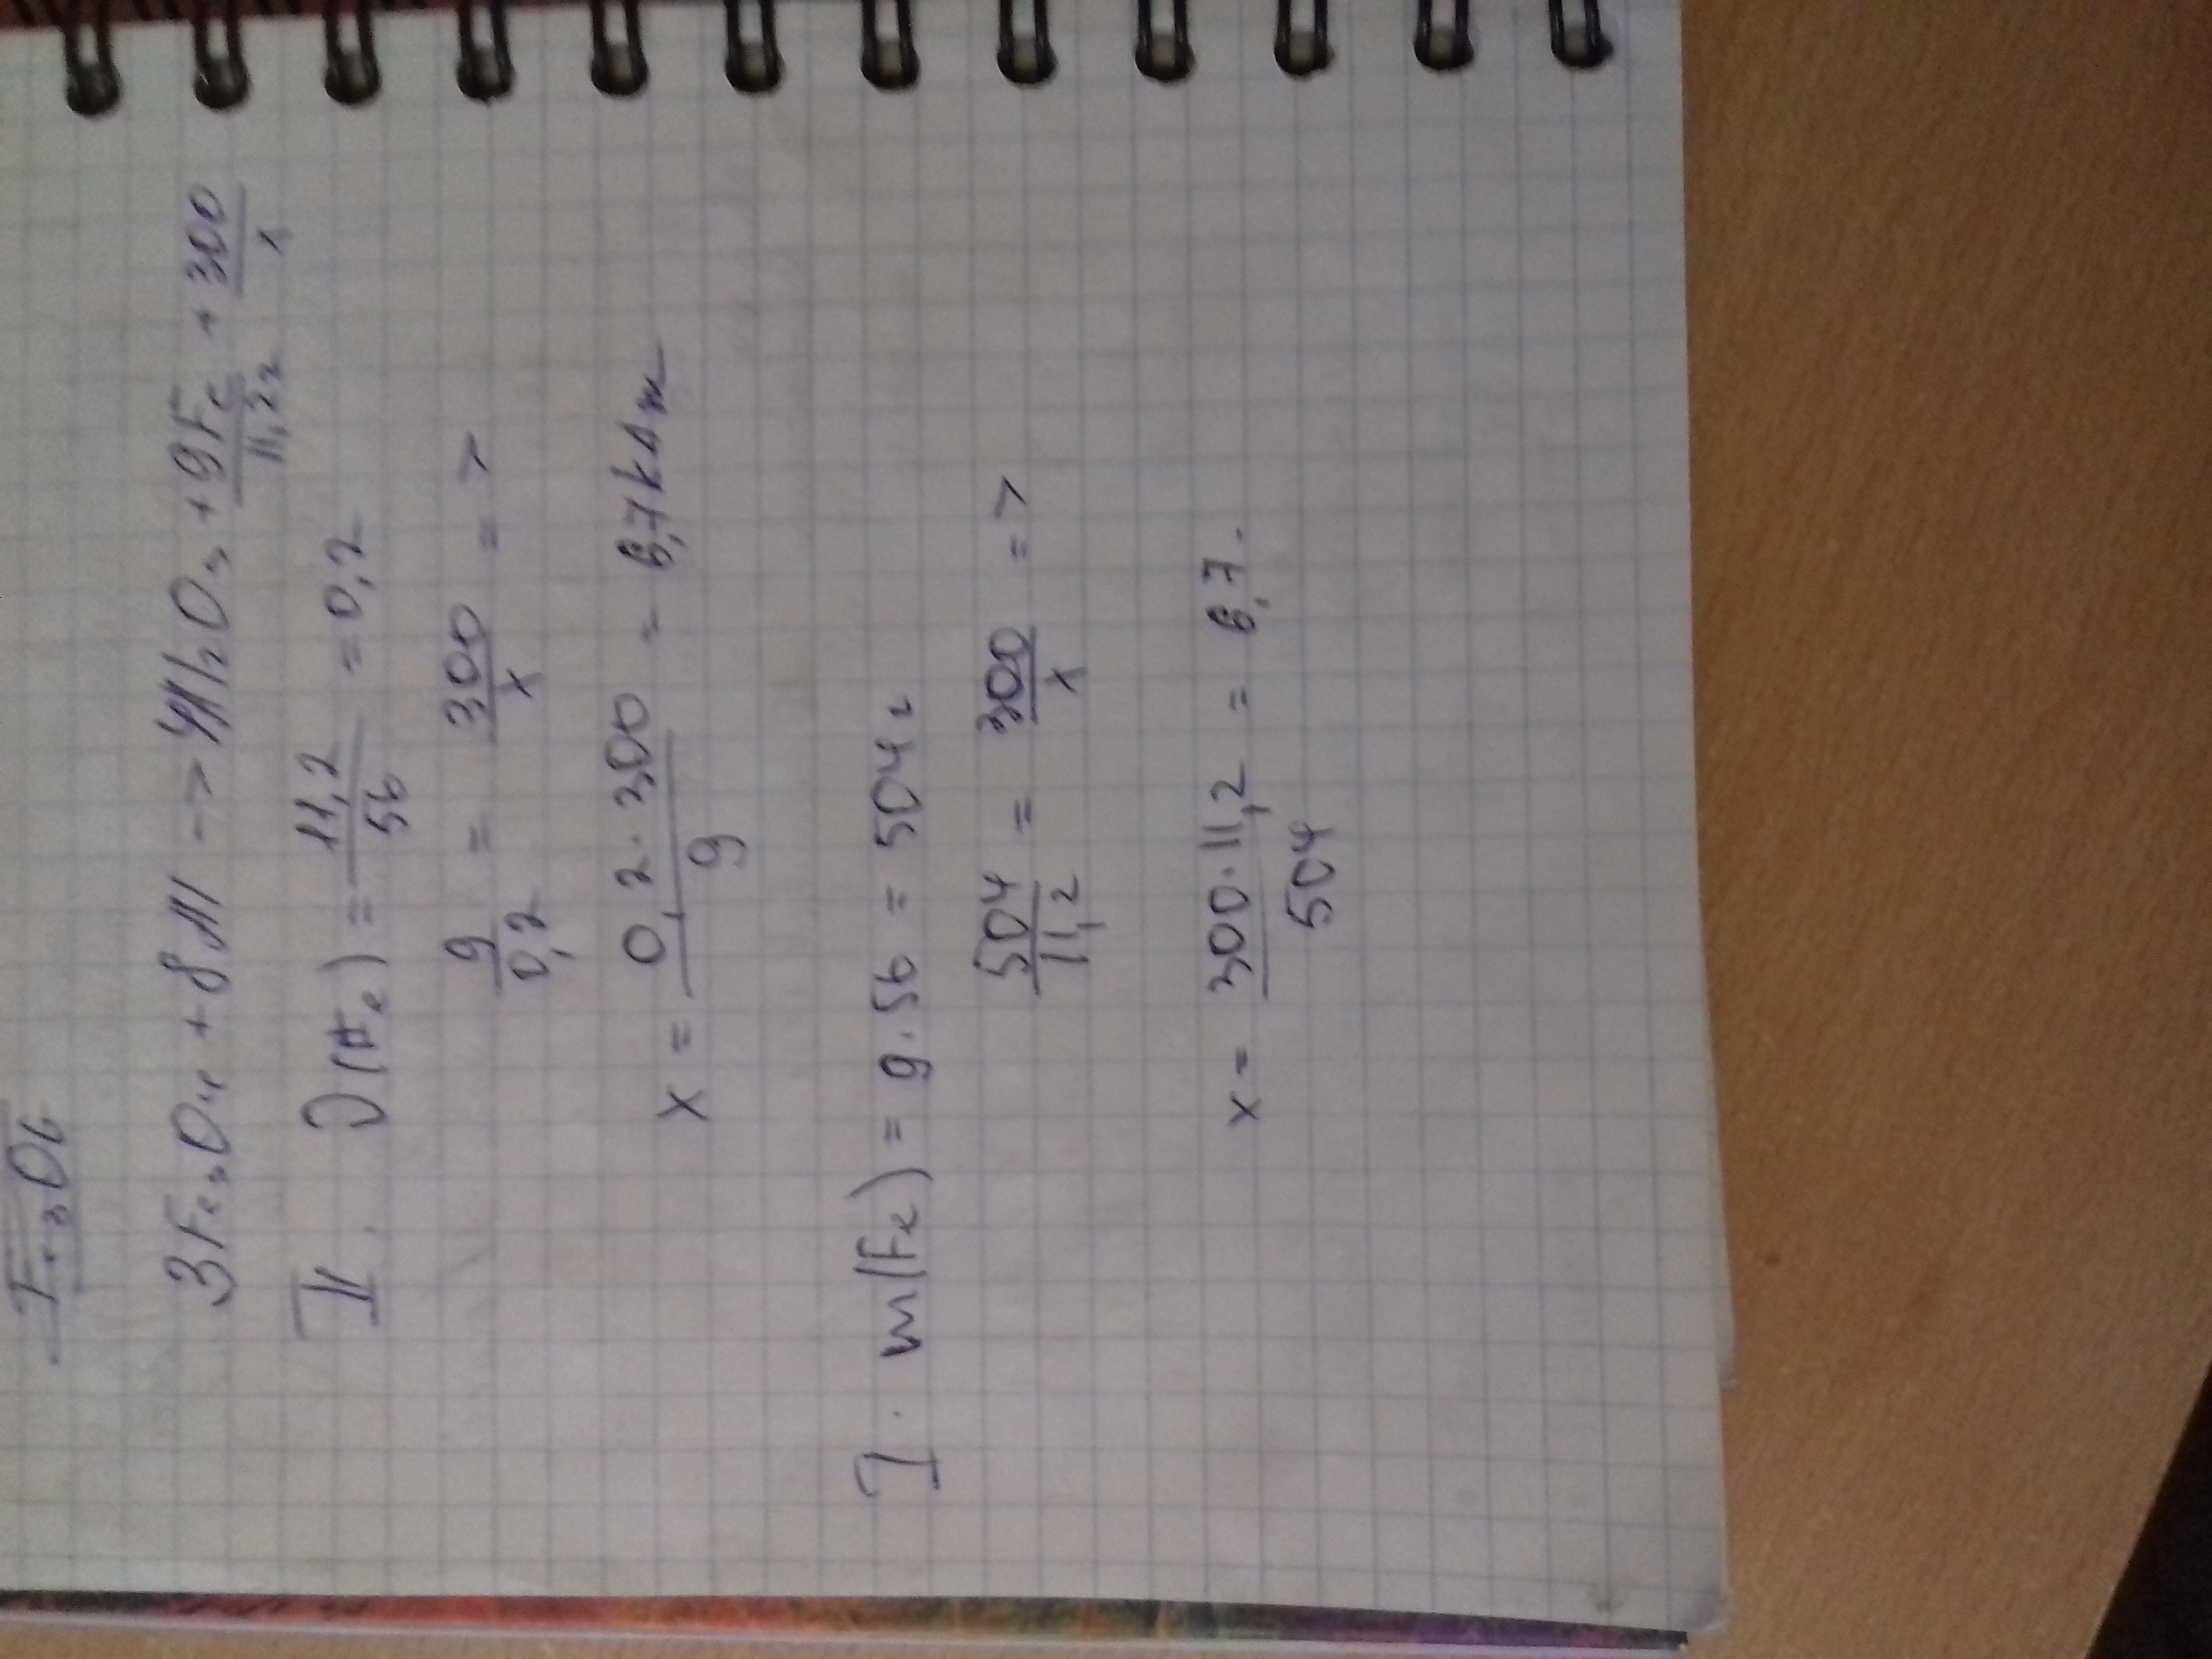 Fe₃O₄
3Fe₃O₄ + 8Al → 4Al₂O₃ + 9Fe/11,2г + 300/x
II. ν(Fe) = 11,2/56 = 0,2
9/0,2 = 300/x =>
x = 0,2·300/9 = 6,7 кДж
I. m(Fe) = 9·56 = 504г
504/11,2 = 300/x =>
x = 300·11,2/504 = 6,7.